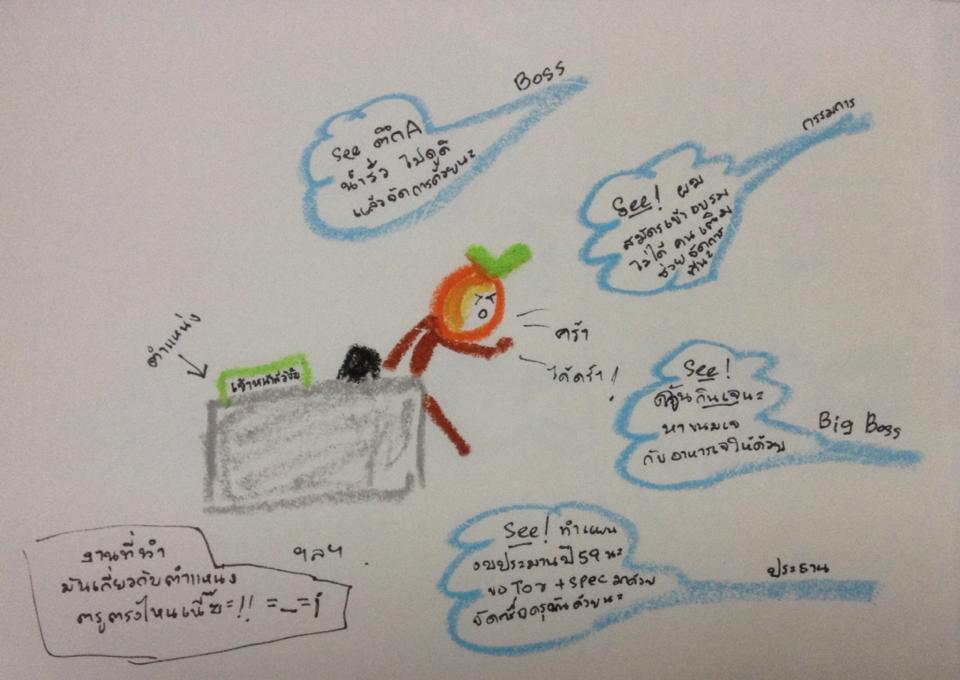 Boss
See ตึกA
น้ำรั่ว ไปดูดิ
แล้วจัดการด้วยนะ
กรรมการ
See! ผม
สมัครเข้าอบรม
ไม่ได้ คนเต็ม
ช่วยจัดการ
ทีนะ
ตำแหน่ง
เจ้าหน้าที่วิจัย
คร้า
ได้คร้า!
See!
กินเจนะ
หาขนมเจ
กับอาหารเจให้ด้วย
Big Boss
See! ทำแผน
งบประมาณปี 59 นะ
ขอ Tor + Spec มาด้วย
ด้วยนะ
ประธาน
ฯลฯ
งานที่ทำ
มันเกี่ยวกับตำแหน่ง
ตรูตรงไหนเนี๊ย=!! =_=j